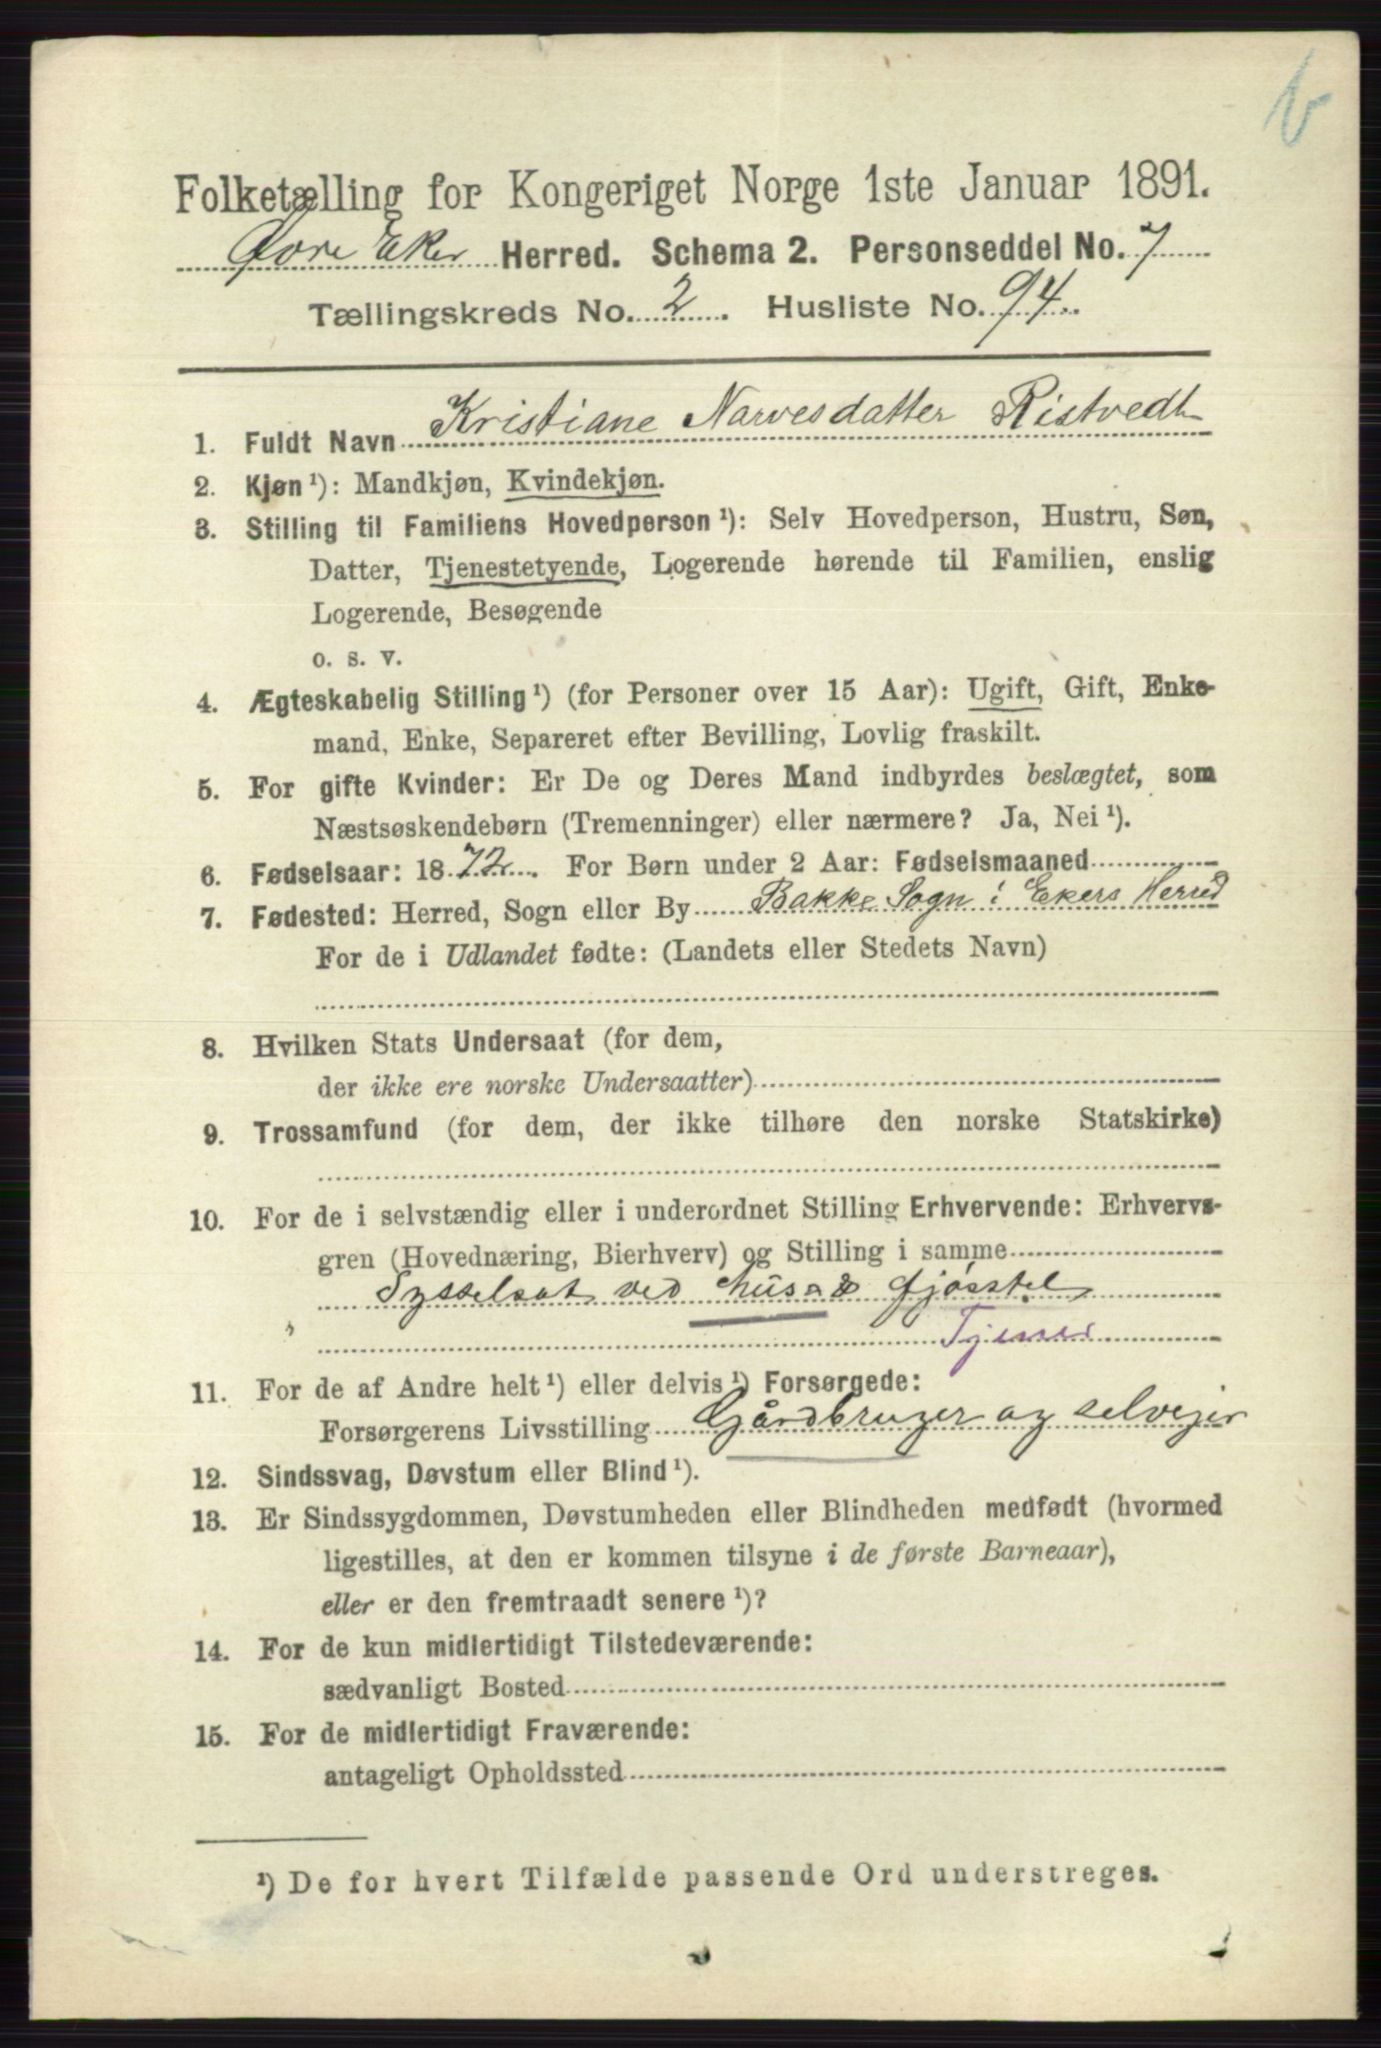 Folketælling for Kongeriget Norge 1ste Januar 1891.
Øvre Eker Herred. Schema 2. Personseddel No. 7
Tællingskreds No. 2. Husliste No. 94.
1. Fuldt Navn Kristiane Narvesdatter Ristvedt
2. Kjøn¹): Mandkjøn, Kvindekjøn.
3. Stilling til Familiens Hovedperson¹): Selv Hovedperson, Hustru, Søn,
Datter, Tjenestetyende, Logerende hørende til Familien, enslig
Logerende, Besøgende
o. s. v.
4. Ægteskabelig Stilling¹) (for Personer over 15 Aar): Ugift, Gift, Enke-
mand, Enke, Separeret efter Bevilling, Lovlig fraskilt.
5. For gifte Kvinder: Er De og Deres Mand indbyrdes beslægtet, som
Næstsøskendebørn (Tremenninger) eller nærmere? Ja, Nei¹).
6. Fødselsaar: 1872. For Børn under 2 Aar: Fødselsmaaned
7. Fødested: Herred, Sogn eller By Bakke Sogn i Ekers Herred
For de i Udlandet fødte: (Landets eller Stedets Navn)
8. Hvilken Stats Undersaat (for dem,
der ikke ere norske Undersaatter)
9. Trossamfund (for dem, der ikke tilhøre den norske Statskirke)
10. For de i selvstændig eller i underordnet Stilling Erhvervende: Erhvervs-
gren (Hovednæring, Bierhverv) og Stilling i samme
Sysselsat ved hus & fjøsstel
Tjener
11. For de af Andre helt¹) eller delvis¹) Forsørgede:
Forsørgerens Livsstilling Gårdbruger og selveier
12. Sindssvag, Døvstum eller Blind¹).
13. Er Sindssygdommen, Døvstumheden eller Blindheden medfødt (hvormed
ligestilles, at den er kommen tilsyne i de første Barneaar),
eller er den fremtraadt senere¹)?
14. For de kun midlertidigt Tilstedeværende:
sædvanligt Bosted
15. For de midlertidigt Fraværende:
antageligt Opholdssted
¹) De for hvert Tilfælde passende Ord understreges.